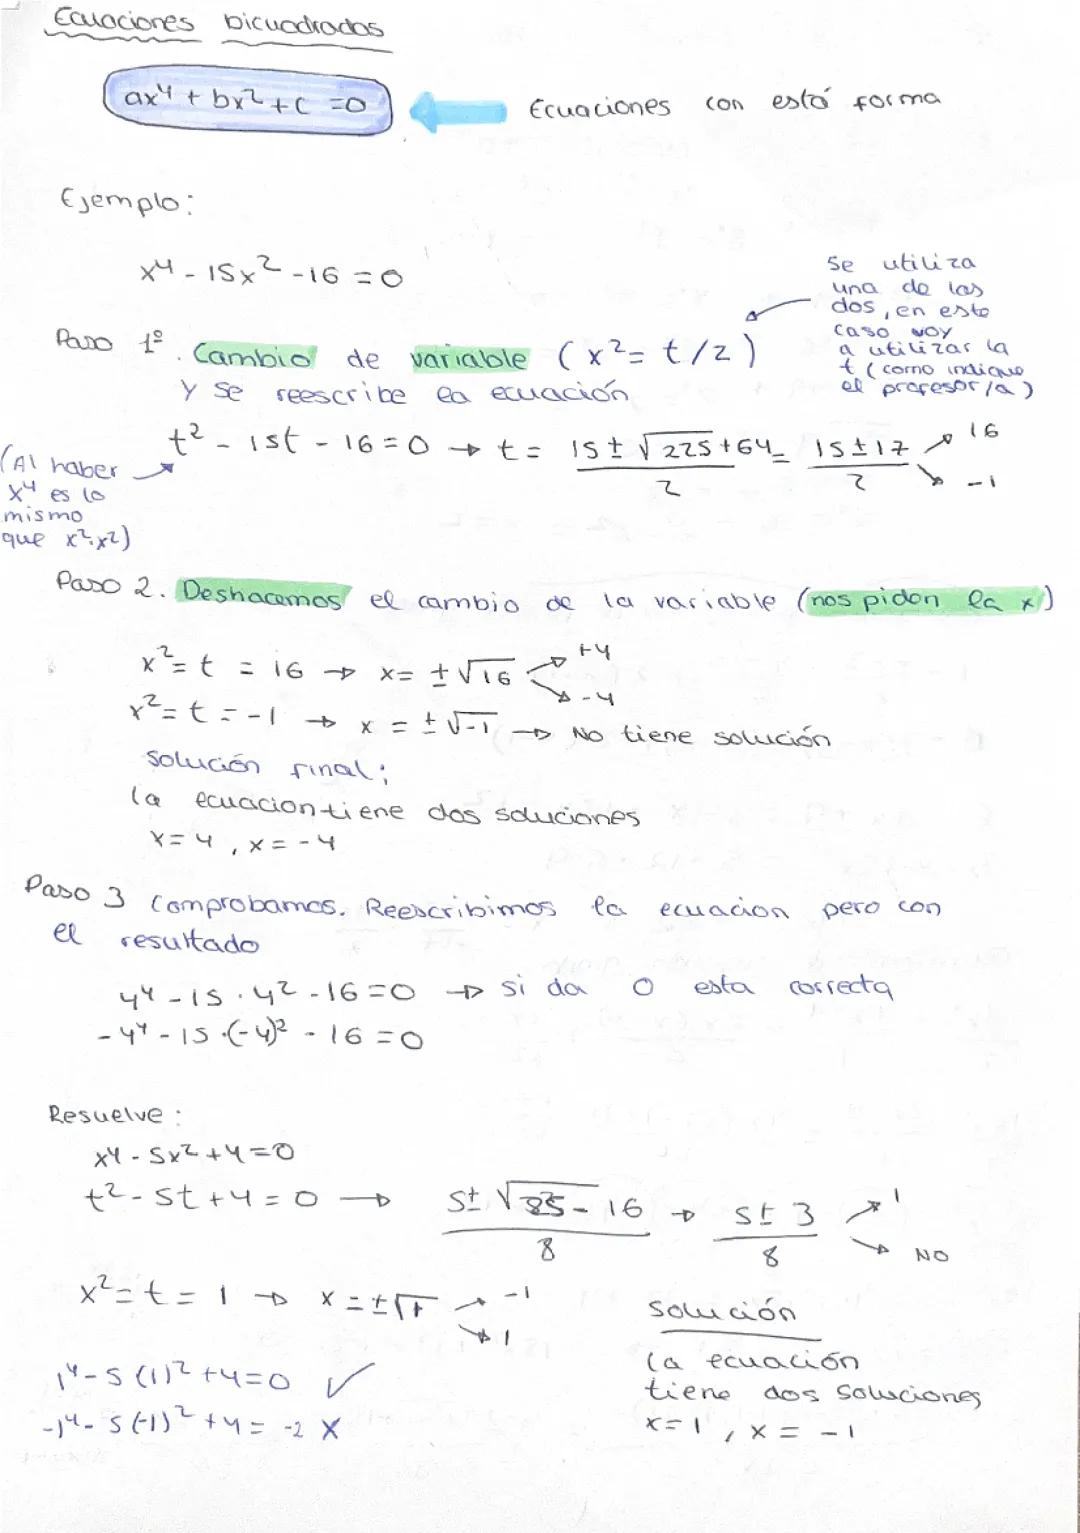 Ecuaciones bicuadradas
ax⁴ + bx² + c = 0
Ecuaciones con está forma
Ejemplo:
x⁴ - 15x² - 16 = 0
Se utiliza
una de las
dos, en este
caso voy
a utilizar la
t (como indique
el profesor/a)
Paso 1º. Cambio de variable (x² = t/z)
y se reescribe la ecuación
t² - 15t - 16 = 0 → t = (15 ± √225+64)/2 = (15 ± 17)/2 ↗ 16 ↘ -1
(Al haber
x⁴ es lo
mismo
que x²·x²)
Paso 2. Deshacemos el cambio de la variable (nos piden la x)
x² = t = 16 → x = ±√16 ↗ +4 ↘ -4
x² = t = -1 → x = ±√-1 → No tiene solución
solución final:
la ecuacion tiene dos soluciones
x = 4, x = -4
Paso 3 Comprobamos. Reescribimos la ecuacion pero con
el resultado
4⁴ - 15 · 4² - 16 = 0 → si da 0 esta correcta
-4⁴ - 15 · (-4)² - 16 = 0
Resuelve:
x⁴ - 5x² + 4 = 0
t² - 5t + 4 = 0 → (5 ± √25 - 16)/8 → (5 ± 3)/8 ↗ 1 ↘ NO
x² = t = 1 → x = ±√1 ↗ -1 ↘ 1
1⁴ - 5(1)² + 4 = 0 ✓
-1⁴ - 5(-1)² + 4 = -2 X
Solución
la ecuación
tiene dos soluciones
x = 1, x = -1